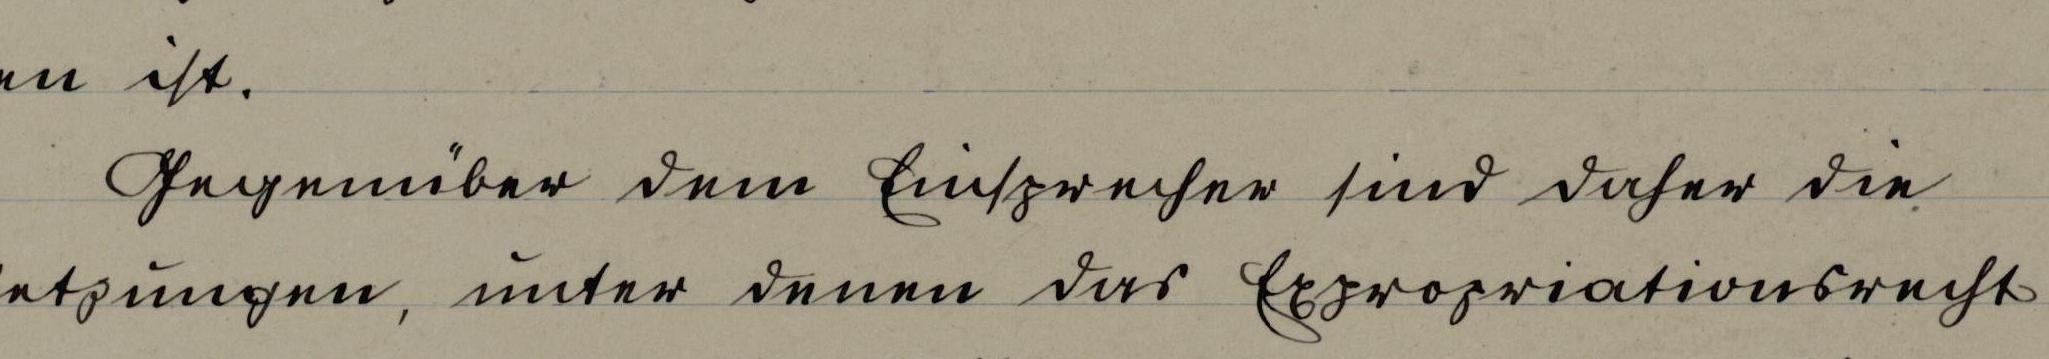 en ist.
Gegenüber dem Einsprecher sind daher die
setzungen, unter denen das Expropriationsrecht